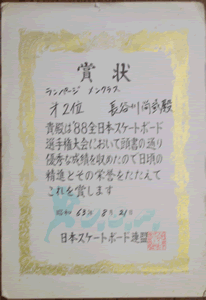 賞状
ランページ メンクラブ
才2位 長谷川尚家殿
貴殿は'88全日本スケートボード
選手権大会において頭書の通り
優秀な成績を収めたので日頃の
精進とその栄誉をたたえて
これを賞します
昭和63年8月21日
日本スケートボード連盟